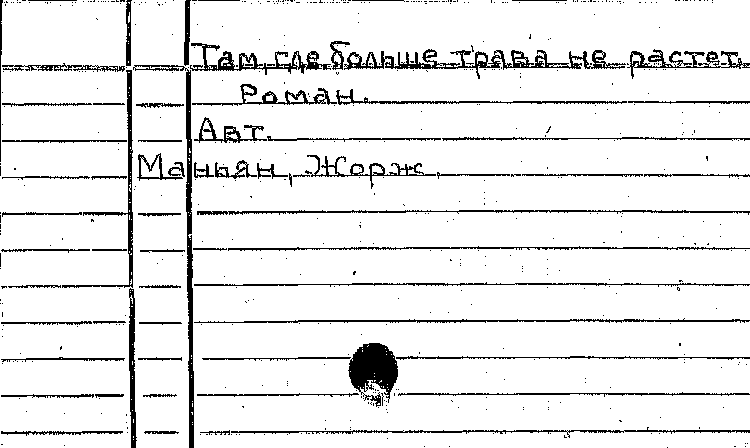 Там, где больше трава не растет.
Роман.
Авт.
Маньян, Жорж.